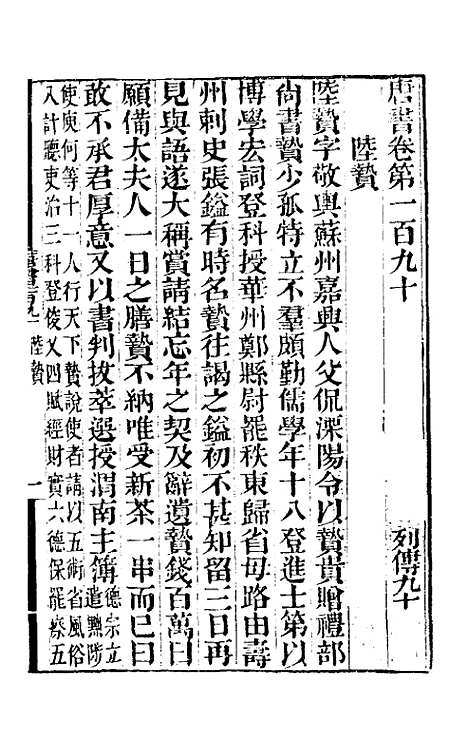 唐書卷第一百九十 列傳九十
陸贄
陸贄字敬輿蘇州嘉興人父侃溧陽令以贄貴贈禮部
尚書贄少孤特立不羣頗勤儒學年十八登進士第以
博學宏詞登科授華州鄭縣尉罷秩東歸省母路由壽
州刺史張鎰有時名贄往謁之鎰初不甚知留三日再
見與語遂大稱賞請結忘年之契及辭遺贄錢百萬曰
願備太夫人一日之膳贄不納唯受新茶一串而已曰
敢不承君厚意又以書判拔萃選授渭南主簿德宗立遣黜陟
使庾何等十一人行天下贄說使者請以五術省風俗
八計聽吏治三科登俊乂四賦經財實六德保罷瘵五
唐書一百九十 陸贄 一